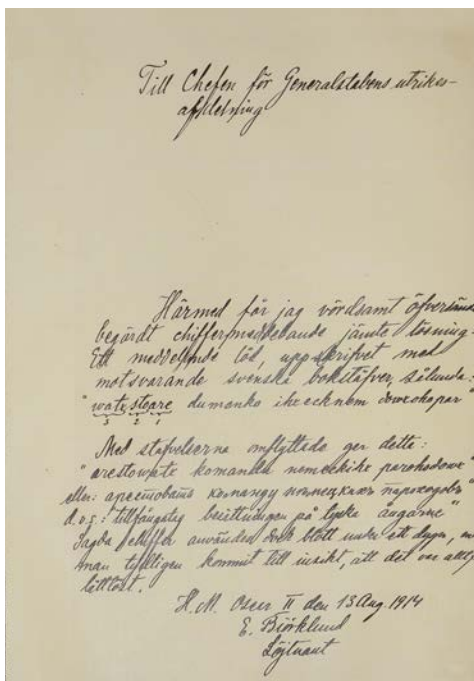 Till Chefen för Generalstabens utrikes-
afdelning
Härmed får jag vördsamt öfversända
begärdt chiffermeddelande jämte lösning.
Ett meddelande löd, uppskrifvet med
motsvarande svenska bokstäfver, sålunda:
"watestoare dumanko ikeecknem doweohopar"
3 2 1
Med stafvelserna omflyttade ger detta:
"arestowate komandu nemeckike parohodowe"
eller: арестовать команду немецких пароходовъ"
d.v.s.: "tillfångatag besättningen på tyska ångarne"
Sagda chiffer användes dock blott under ett dygn, 
man tydligen kommit till insikt, att det var alltför
lättlöst.
H.M. Oscar II den 13 Aug. 1914
E. Björklund
Löjtnant